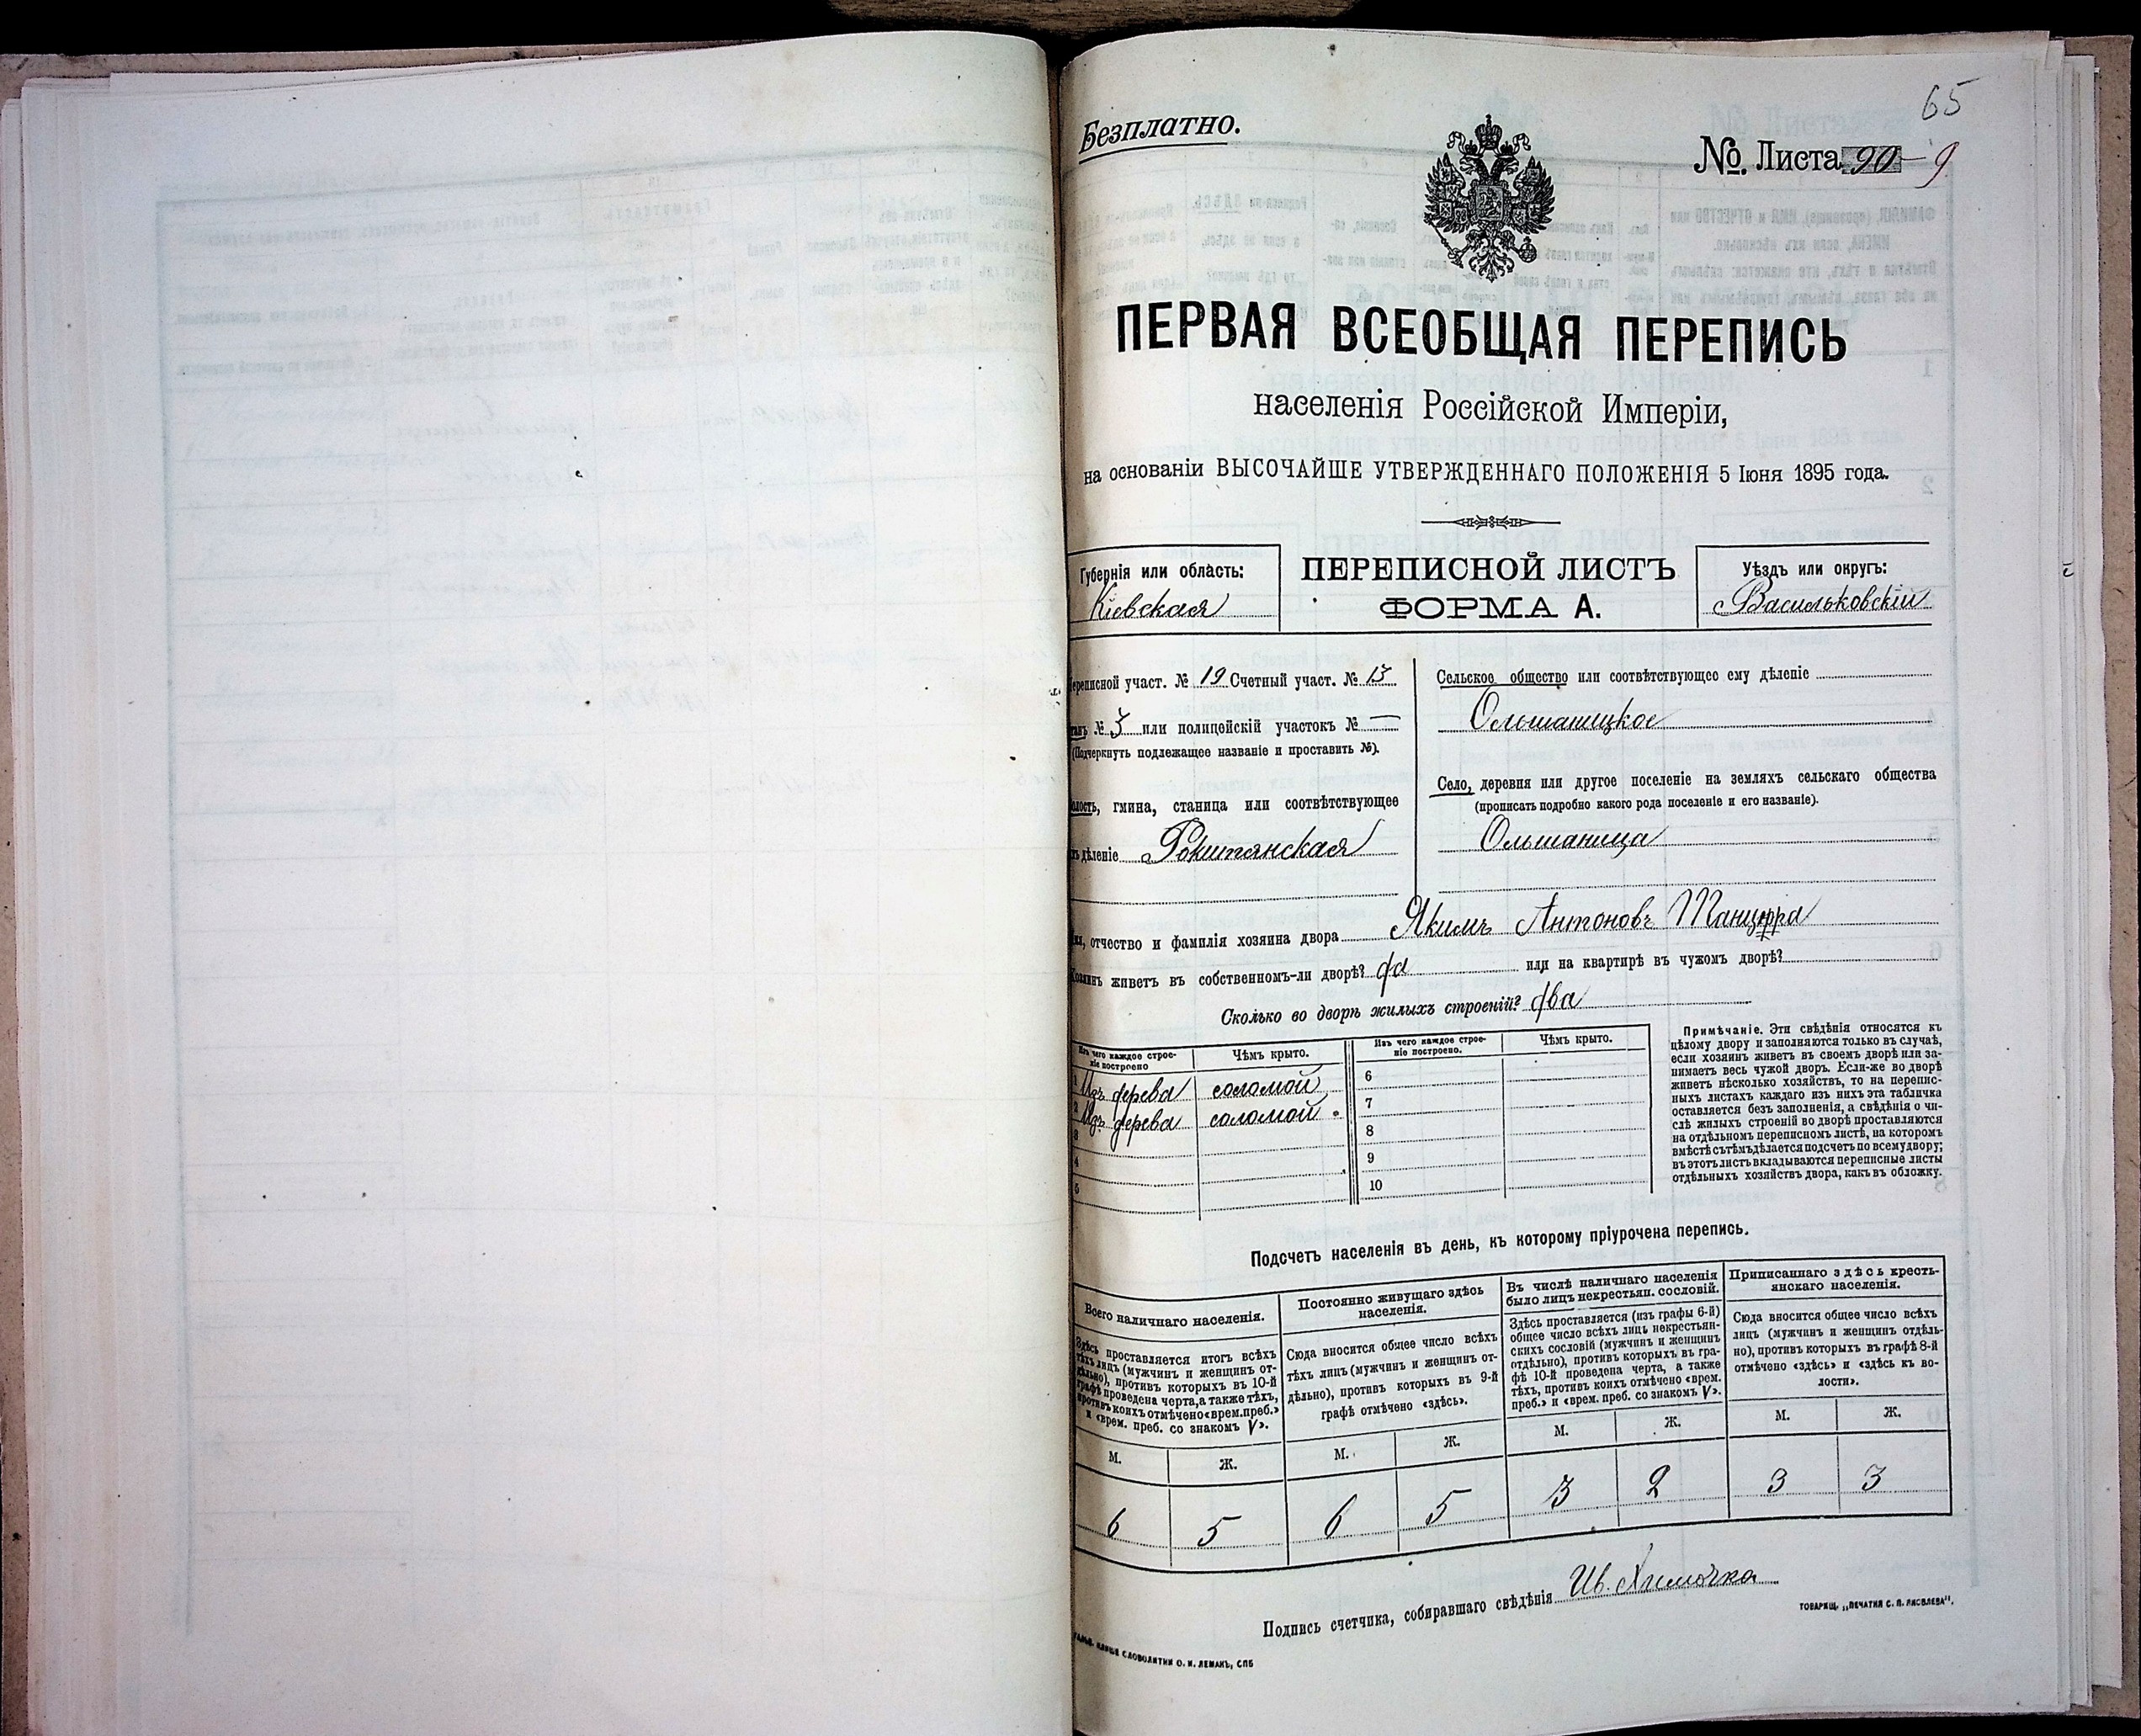 65
Безплатно.
№ Листа 90 - 9
ПЕРВАЯ ВСЕОБЩАЯ ПЕРЕПИСЬ
населенія Россійской Имперіи,
на основаніи ВЫСОЧАЙШЕ УТВЕРЖДЕННАГО ПОЛОЖЕНІЯ 5 Іюня 1895 года.
Губернія или область:
Кіевская
ПЕРЕПИСНОЙ ЛИСТЪ
ФОРМА А.
Уѣздъ или округъ:
Васильковскій
Переписной участ. № 19 Счетный участ. № 13
станъ № 3 или полицейскій участокъ № —
(Подчеркнуть подлежащее названіе и проставить №).
волость, гмина, станица или соотвѣтствующее
дѣленіе Рокитянская
Сельское общество или соотвѣтствующее ему дѣленіе
Ольшаницкое
Село, деревня или другое поселеніе на земляхъ сельскаго общества
(прописать подробно какого рода поселеніе и его названіе).
Ольшаница
отчество и фамилія хозяина двора Якимъ Антоновъ Танцюра
Хозяинъ живетъ въ собственномъ-ли дворѣ? да или на квартирѣ въ чужомъ дворѣ?
Сколько во дворѣ жилыхъ строеній? два
Изъ чего каждое строе-
ніе построено
Чѣмъ крыто.
Изъ чего каждое строе-
ніе построено.
Чѣмъ крыто.
1 Изъ дерева соломой 6
2 Изъ дерева соломой 7
3 8
4 9
5 10
Примѣчаніе. Эти свѣдѣнія относятся къ
цѣлому двору и заполняются только въ случаѣ,
если хозяинъ живетъ въ своемъ дворѣ или за-
нимаетъ весь чужой дворъ. Если-же во дворѣ
живетъ нѣсколько хозяйствъ, то на перепис-
ныхъ листахъ каждаго изъ нихъ эта табличка
оставляется безъ заполненія, а свѣдѣнія о чи-
слѣ жилыхъ строеній во дворѣ проставляются
на отдѣльномъ переписномъ листѣ, на которомъ
вмѣстѣ съ тѣмъ дѣлается подсчетъ по всему двору;
въ этотъ листъ вкладываются переписные листы
отдѣльныхъ хозяйствъ двора, какъ въ обложку.
Подсчетъ населенія въ день, къ которому пріурочена перепись.
Всего наличнаго населенія.
Здѣсь проставляется итогъ всѣхъ
тѣхъ лицъ (мужчинъ и женщинъ от-
дѣльно), противъ которыхъ въ 10-й
графѣ проведена черта, а также тѣхъ,
противъ коихъ отмѣчено «врем. преб.»
и «врем. преб. со знакомъ V».
М. Ж.
6 5
Постоянно живущаго здѣсь
населенія.
Сюда вносится общее число всѣхъ
тѣхъ лицъ (мужчинъ и женщинъ от-
дѣльно), противъ которыхъ въ 9-й
графѣ отмѣчено «здѣсь».
М. Ж.
6 5
Въ числѣ наличнаго населенія
было лицъ некрестьян. сословій.
Здѣсь проставляется (изъ графы 6-й)
общее число всѣхъ лицъ некрестьян-
скихъ сословій (мужчинъ и женщинъ
отдѣльно), противъ которыхъ въ гра-
фѣ 10-й проведена черта, а также
тѣхъ, противъ коихъ отмѣчено «врем.
преб.» и «врем. преб. со знакомъ V».
М. Ж.
3 2
Приписаннаго здѣсь кресть-
янскаго населенія.
Сюда вносится общее число всѣхъ
лицъ (мужчинъ и женщинъ отдѣль-
но), противъ которыхъ въ графѣ 8-й
отмѣчено «здѣсь» и «здѣсь къ во-
лости».
М. Ж.
3 3
Подпись счетчика, собиравшаго свѣдѣнія Ив. Химочка
ТОВАРИЩ. „ПЕЧАТНЯ С. П. ЯКОВЛЕВА".
СЛОВОЛИТНИ О. И. ЛЕМАНЪ, СПБ